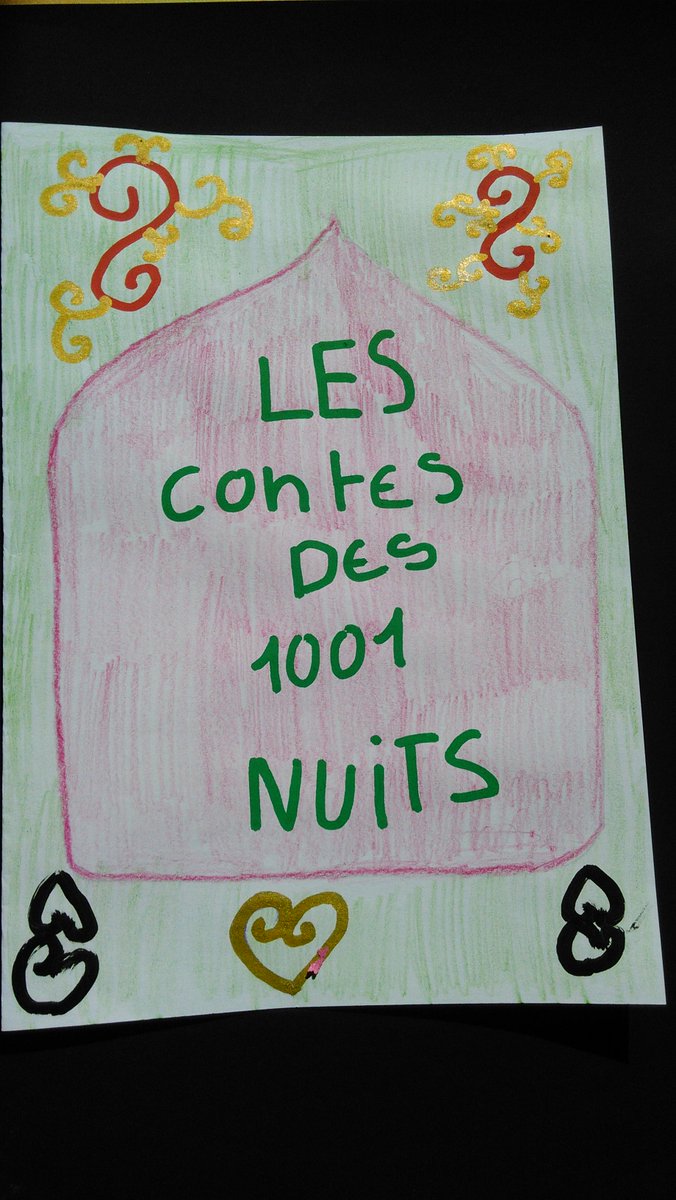 LES
contes
DES
1001
NUiTS